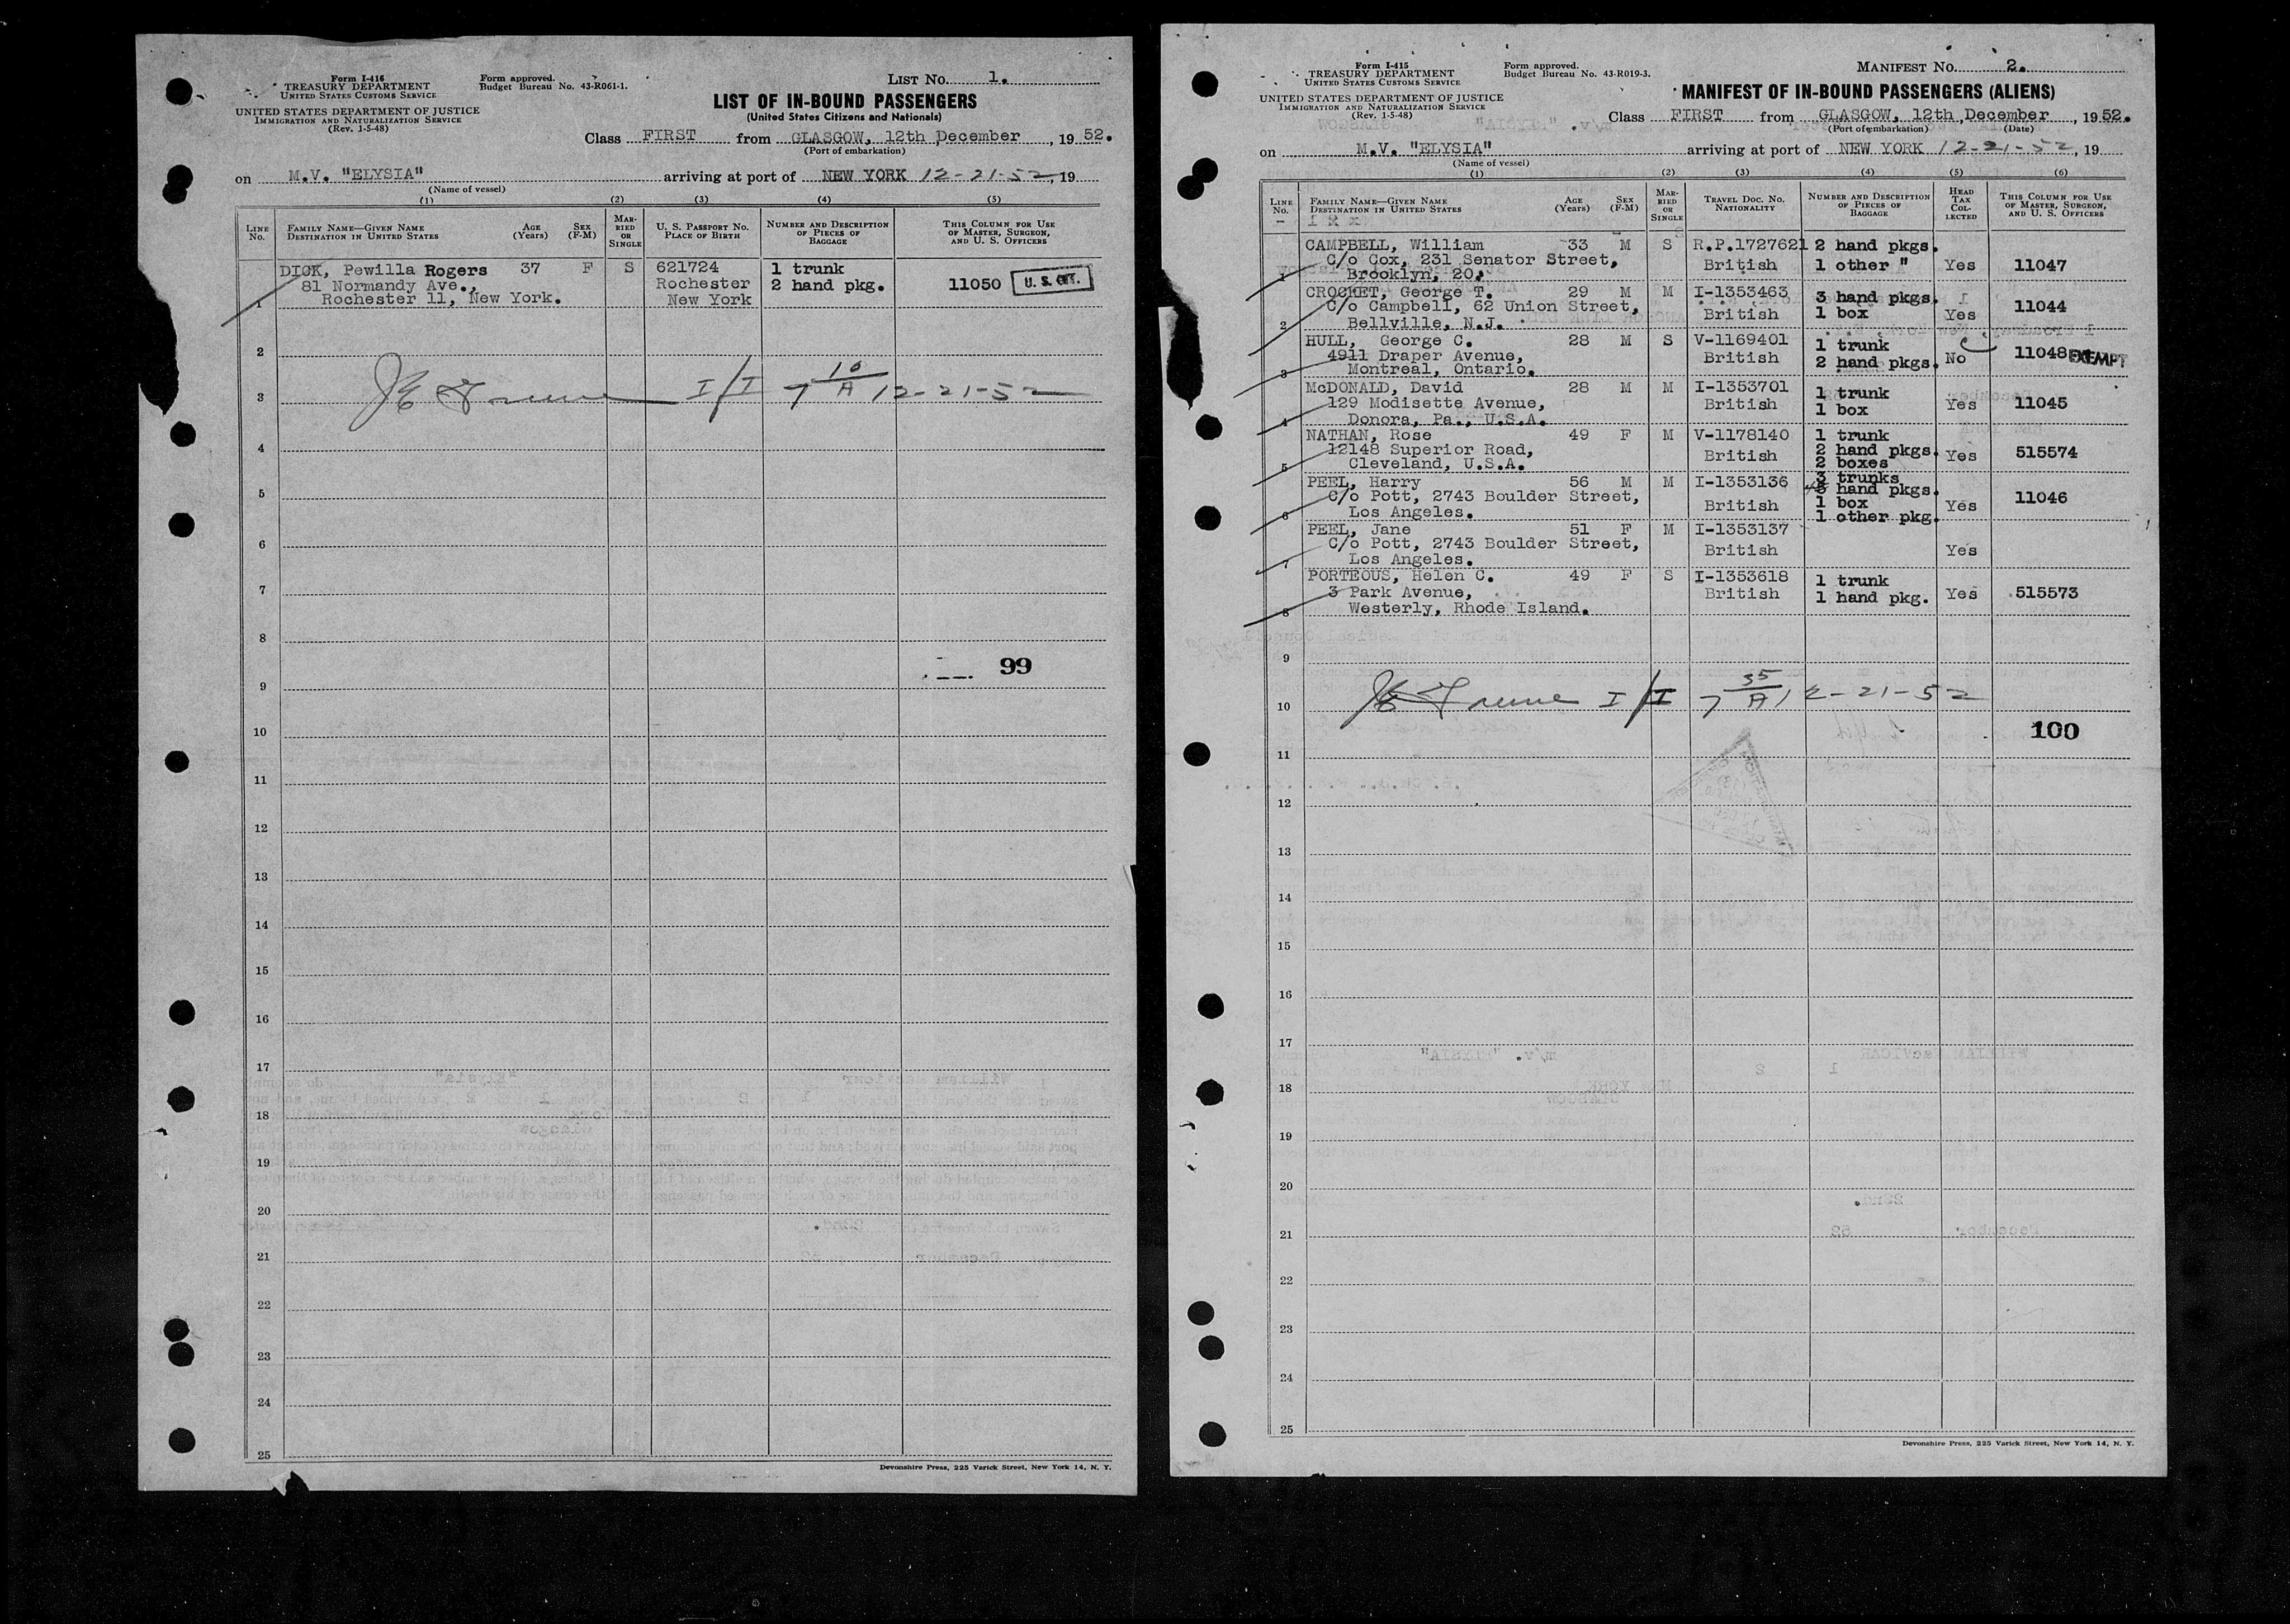 Form I-416
TREASURY DEPARTMENT
UNITED STATES CUSTOMS SERVICE
UNITED STATES DEPARTMENT OF JUSTICE
IMMIGRATION AND NATURALIZATION SERVICE
(Rev. 1-5-48)
Form approved.
Budget Bureau No. 43-R061-1.
LIST NO. 1.
LIST OF IN-BOUND PASSENGERS
(United States Citizens and Nationals)
Class FIRST from GLASGOW, 12th December, 1952.
(Port of embarkation)
on M.V. "ELYSIA" arriving at port of NEW YORK 12-21-52, 19
(Name of vessel)
(1) (2) (3) (4) (5)
LINE No. FAMILY NAME—GIVEN NAME DESTINATION IN UNITED STATES AGE (Years) SEX (F-M) MARRIED OR SINGLE U. S. PASSPORT NO. PLACE OF BIRTH NUMBER AND DESCRIPTION OF PIECES OF BAGGAGE THIS COLUMN FOR USE OF MASTER, SURGEON, AND U. S. OFFICERS
DICK, Pewilla Rogers 37 F S 621724 1 trunk
81 Normandy Ave., Rochester 2 hand pkg. 11050 U. S. CIT.
1 Rochester 11, New York. New York
2
3 I/I 7 10/A 12-21-52
4
5
6
7
8
99
9
10
11
12
13
14
15
16
17
18
19
20
21
22
23
24
25
Devonshire Press, 225 Varick Street, New York 14, N. Y.
Form I-415
TREASURY DEPARTMENT
UNITED STATES CUSTOMS SERVICE
UNITED STATES DEPARTMENT OF JUSTICE
IMMIGRATION AND NATURALIZATION SERVICE
(Rev. 1-5-48)
Form approved.
Budget Bureau No. 43-R019-3.
MANIFEST NO. 2.
MANIFEST OF IN-BOUND PASSENGERS (ALIENS)
Class FIRST from GLASGOW, 12th December, 1952.
(Port of embarkation) (Date)
on M.V. "ELYSIA" arriving at port of NEW YORK 12-21-52, 19
(Name of vessel)
(1) (2) (3) (4) (5) (6)
LINE No. FAMILY NAME—GIVEN NAME DESTINATION IN UNITED STATES AGE (Years) SEX (F-M) MARRIED OR SINGLE TRAVEL DOC. NO. NATIONALITY NUMBER AND DESCRIPTION OF PIECES OF BAGGAGE HEAD TAX COLLECTED THIS COLUMN FOR USE OF MASTER, SURGEON, AND U. S. OFFICERS
CAMPBELL, William 33 M S R.P.1727621 2 hand pkgs.
C/o Cox, 231 Senator Street, British 1 other " Yes 11047
1 Brooklyn, 20.
CROCKET, George T. 29 M M I-1353463 3 hand pkgs.
C/o Campbell, 62 Union Street, British 1 box Yes 11044
2 Bellville, N.J.
HULL, George C. 28 M S V-1169401 1 trunk
4911 Draper Avenue, British 2 hand pkgs. No 11048 EXEMPT
3 Montreal, Ontario.
McDONALD, David 28 M M I-1353701 1 trunk
129 Modisette Avenue, British 1 box Yes 11045
4 Donora, Pa., U.S.A.
NATHAN, Rose 49 F M V-1178140 1 trunk
12148 Superior Road, British 2 hand pkgs. Yes 515574
5 Cleveland, U.S.A. 2 boxes
PEEL, Harry 56 M M I-1353136 3 trunks
C/o Pott, 2743 Boulder Street, hand pkgs. 11046
6 Los Angeles. British 1 box Yes
1 other pkg.
PEEL, Jane 51 F M I-1353137
C/o Pott, 2743 Boulder Street, British Yes
7 Los Angeles.
PORTEOUS, Helen C. 49 F S I-1353618 1 trunk
3 Park Avenue, British 1 hand pkg. Yes 515573
8 Westerly, Rhode Island.
9
10 I/I 7 35/A 12-21-52
100
11
12
13
14
15
16
17
18
19
20
21
22
23
24
25
Devonshire Press, 225 Varick Street, New York 14, N. Y.